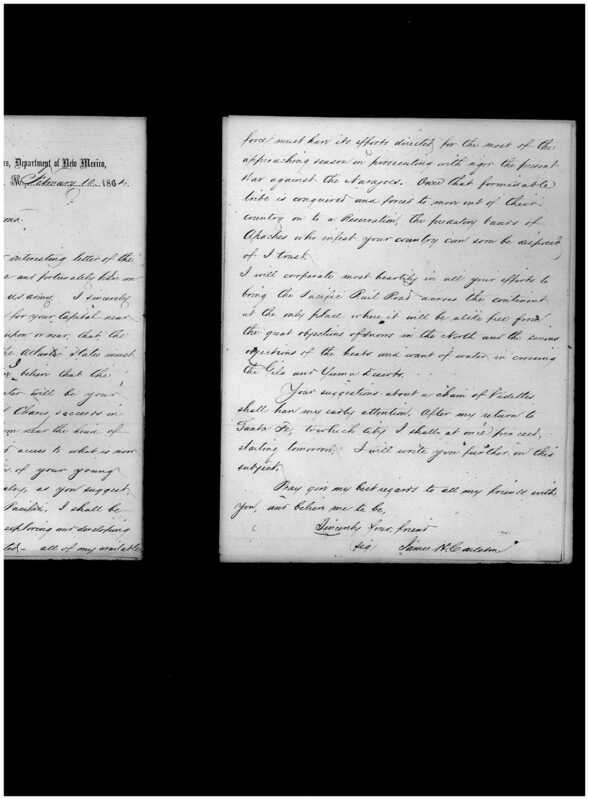 rs, Department of New Mexico,
N. M. February 1864.
interesting letter of the
e and fortunately like in
us army. I sincerely
for your Capital near
upon a war, that the
he Atlantic States must
I believe that the
will be your
Chaves, success in
near the head of
access to what is now
s of your young
as you suggest,
Pacific. I shall be
exploring and developing
all of my available
force must have its efforts directed for the most of the
approaching season in prosecuting with vigor the present
War against the Navajoes. Once that formidable
tribe is conquered and forced to move out of their
country on to a Reservation, the predatory bands of
Apaches who infest your country can soon be disposed
of I trust.
I will cooperate most heartily in all your efforts to
bring the Pacific Rail Road across the continent
at the only place where it will be alike free from
the great objections of snows in the North and the serious
objections of the heats and want of water in crossing
the Gila and Yuma Deserts.
Your suggestions about a chain of Videttes
shall have my early attention. After my return to
Santa Fe, to which city I shall at once proceed,
starting tomorrow, I will write you further on this
subject.
Pray give my best regards to all my friends with
you, and believe me to be,
Sincerely Your friend
sig James H. Carleton